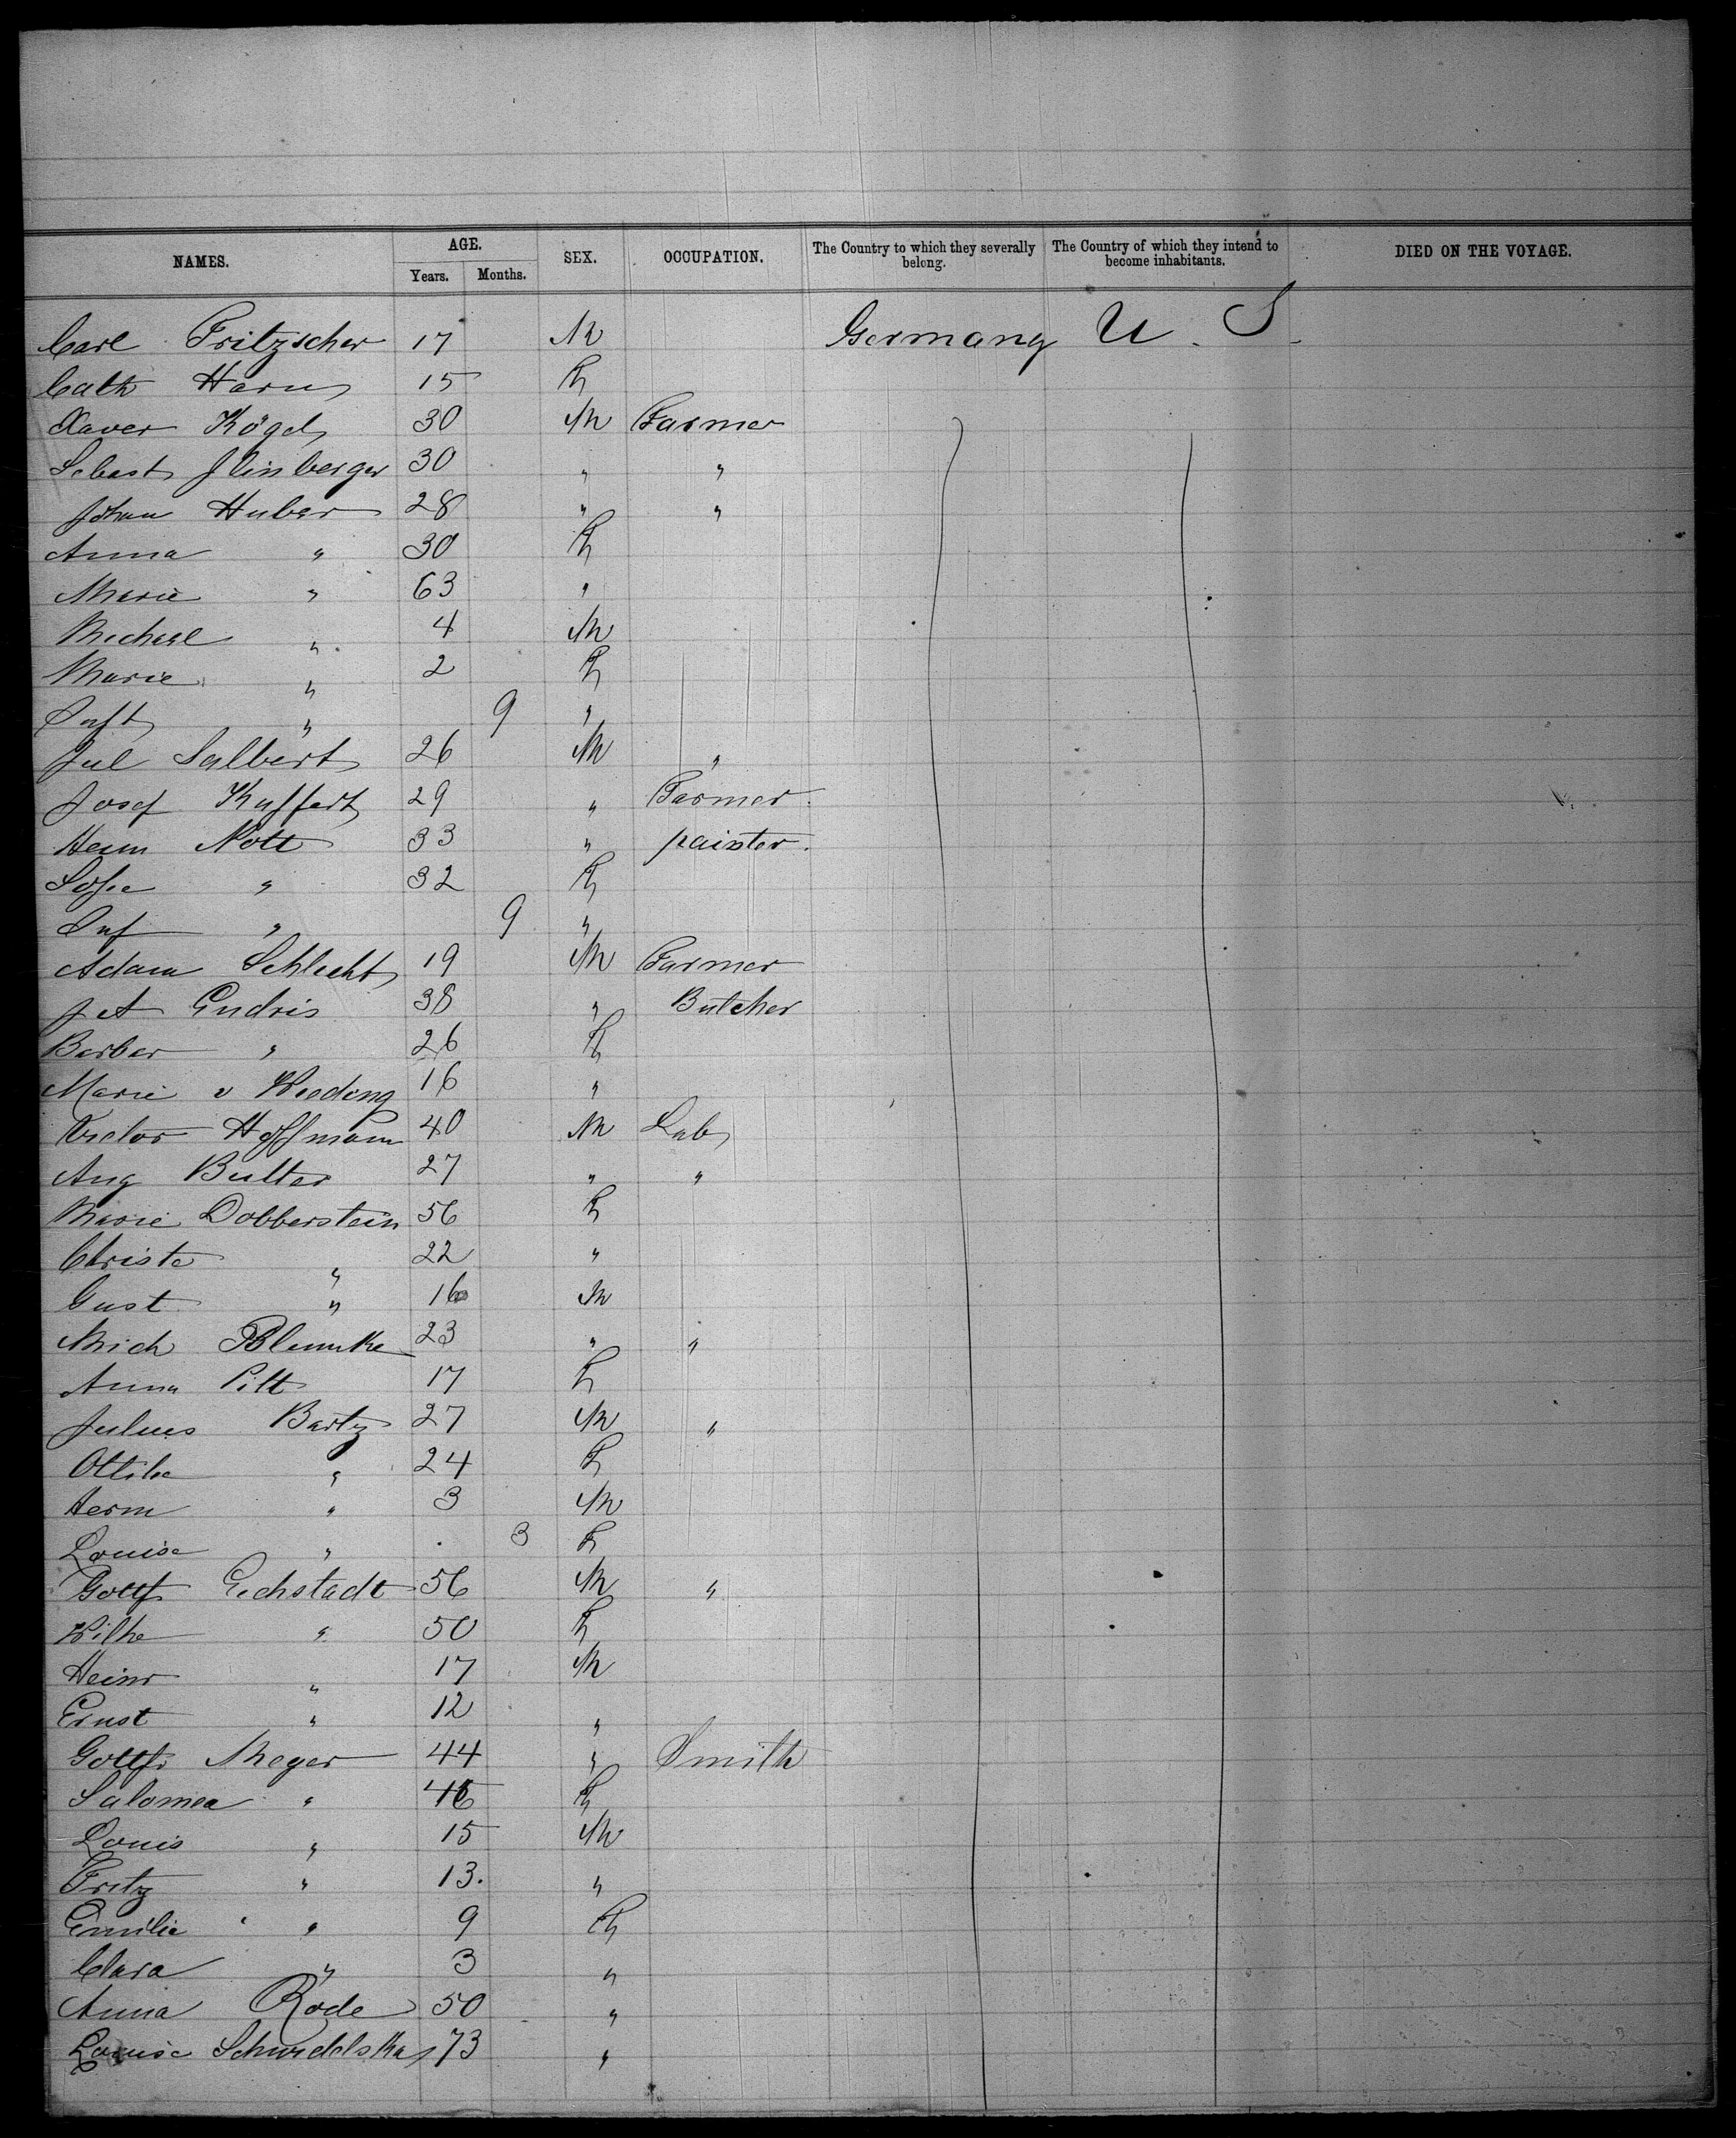 NAMES. AGE. SEX. OCCUPATION. The Country to which they severally belong. The Country of which they intend to become inhabitants. DIED ON THE VOYAGE.
Years. Months.
Carl Fritzscher 17 M Germany U. S.
Cath Harn 15 F
Xaver Kögel 30 M Farmer
Sebast 30 " "
Johan Huber 28 " "
Anna " 30 F
Marie " 63 "
Michael " 4 M
Marie " 2 F
Inft " 9 "
Jul Salbert 26 M "
Josef Kuffert 29 " Farmer
Herm Nott 33 " painter.
Sofie " 32 F
Inf " 9 "
Adam Schlecht 19 M Farmer
Jet Endris 38 " Butcher
Barbar " 26 F
Marie v Weeding 16 "
Victor Hoffmann 40 M Lab
Aug Butler 27 " "
Marie Dobberstein 56 F
Christe " 22 "
Gust " 16 M
Mich Blumke 23 " "
Anna Pilt 17 F
Julius Bartz 27 M "
Ottilie " 24 F
Herm " 3 M
Louise " 3 F
Gottf Eichstadt 56 M "
Wilhe " 50 F
Heinr " 17 M
Ernst " 12 "
Gottfr Meyer 44 " Smith
Salomea " F
Louis " 15 M
Fritz " 13. "
Emilie " 9 F
Clara " 3 "
Anna Rode 50 "
Louise 73 "